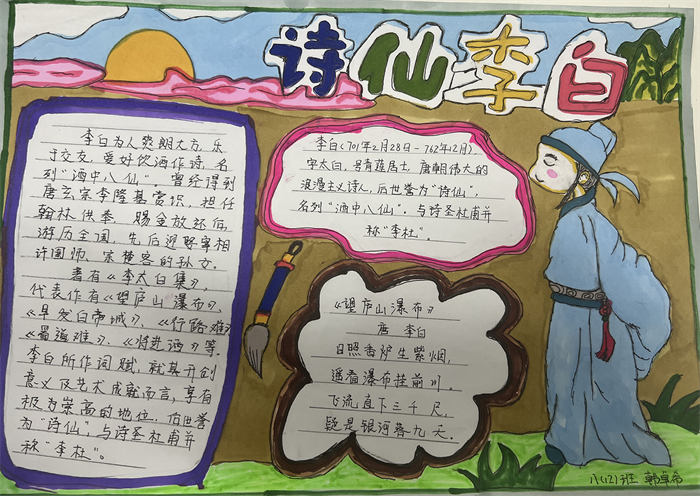 诗仙李白
李白为人爽朗大方，乐
于交友，爱好饮酒作诗，名
列“酒中八仙”。曾经得到
唐玄宗李隆基赏识，担任
翰林供奉，赐金放还后，
游历全国，先后迎娶宰相
许圉师、宗楚客的孙女。
著有《李太白集》，
代表作有《望庐山瀑布》、
《早发白帝城》、《行路难》
《蜀道难》、《将进酒》等.
李白所作词赋，就其开创
意义及艺术成就而言，享有
极为崇高的地位，后世誉
为“诗仙”，与诗圣杜甫并
称“李杜”。
李白(701年2月28日-762年12月)
字太白，号青莲居士，唐朝伟大的
浪漫主义诗人，后世誉为“诗仙”，
名列“酒中八仙”。与诗圣杜甫并
称“李杜”。
《望庐山瀑布》
唐 李白
日照香炉生紫烟，
遥看瀑布挂前川。
飞流直下三千尺，
疑是银河落九天。
八(12)班 韩卓希